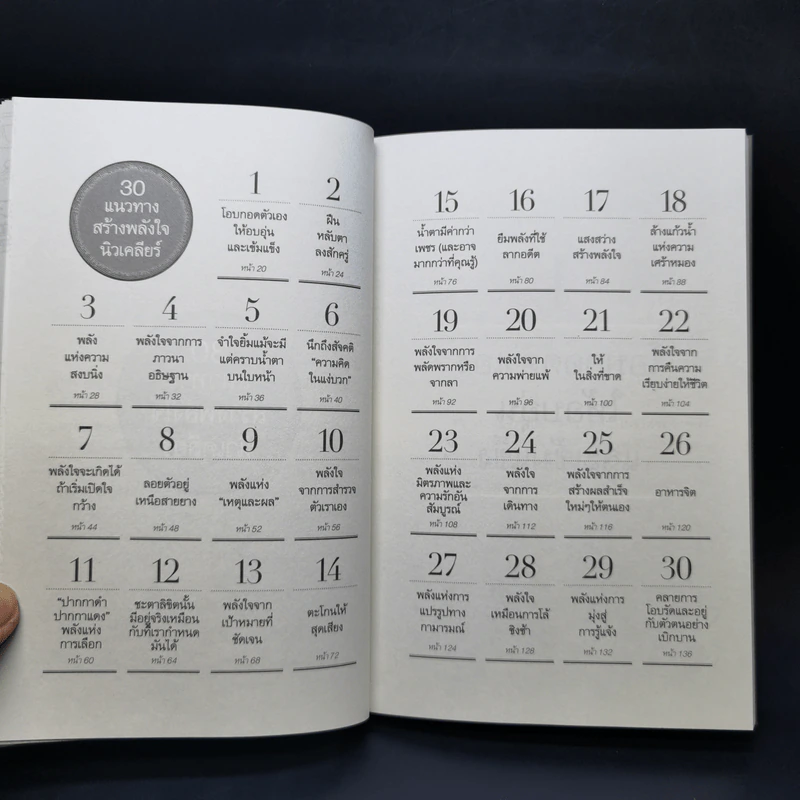 30
แนวทาง
สร้างพลังใจ
นิวเคลียร์
1
โอบกอดตัวเอง
ให้อบอุ่น
และเข้มแข็ง
หน้า 20
2
ฝืน
หลับตา
ลงสักครู่
หน้า 24
3
พลัง
แห่งความ
สงบนิ่ง
หน้า 28
4
พลังใจจากการ
ภาวนา
อธิษฐาน
หน้า 32
5
จำใจยิ้มแม้จะมี
แต่คราบน้ำตา
บนใบหน้า
หน้า 36
6
นึกถึงสัจคติ
"ความคิด
ในแง่บวก"
หน้า 40
7
พลังใจจะเกิดได้
ถ้าเริ่มเปิดใจ
กว้าง
หน้า 44
8
ลอยตัวอยู่
เหนือสายยาง
หน้า 48
9
พลังแห่ง
"เหตุและผล"
หน้า 52
10
พลังใจ
จากการสำรวจ
ตัวเราเอง
หน้า 56
11
"ปากกาดำ
ปากกาแดง"
พลังแห่ง
การเลือก
หน้า 60
12
ชะตาลิขิตนั้น
มีอยู่จริงเหมือน
กับที่เรากำหนด
มันได้
หน้า 64
13
พลังใจจาก
เป้าหมายที่
ชัดเจน
หน้า 68
14
ตะโกนให้
สุดเสียง
หน้า 72
15
น้ำตามีค่ากว่า
เพชร (และอาจ
มากกว่าที่คุณรู้)
หน้า 76
16
ยืมพลังที่ใช้
ลากอดีต
หน้า 80
17
แสงสว่าง
สร้างพลังใจ
หน้า 84
18
ล้างแก้วน้ำ
แห่งความ
เศร้าหมอง
หน้า 88
19
พลังใจจากการ
พลัดพรากหรือ
จากลา
หน้า 92
20
พลังใจจาก
ความพ่ายแพ้
หน้า 96
21
ให้
ในสิ่งที่ขาด
หน้า 100
22
พลังใจจาก
การคืนความ
เรียบง่ายให้ชีวิต
หน้า 104
23
พลังแห่ง
มิตรภาพและ
ความรักอัน
สมบูรณ์
หน้า 108
24
พลังใจ
จากการ
เดินทาง
หน้า 112
25
พลังใจจากการ
สร้างผลสำเร็จ
ใหม่ๆให้ตนเอง
หน้า 116
26
อาหารจิต
หน้า 120
27
พลังแห่งการ
แปรรูปทาง
กามารมณ์
หน้า 124
28
พลังใจ
เหมือนการโล้
ชิงช้า
หน้า 128
29
พลังแห่งการ
มุ่งสู่
การรู้แจ้ง
หน้า 132
30
คลายการ
โอบรัดและอยู่
กับตัวตนอย่าง
เบิกบาน
หน้า 136